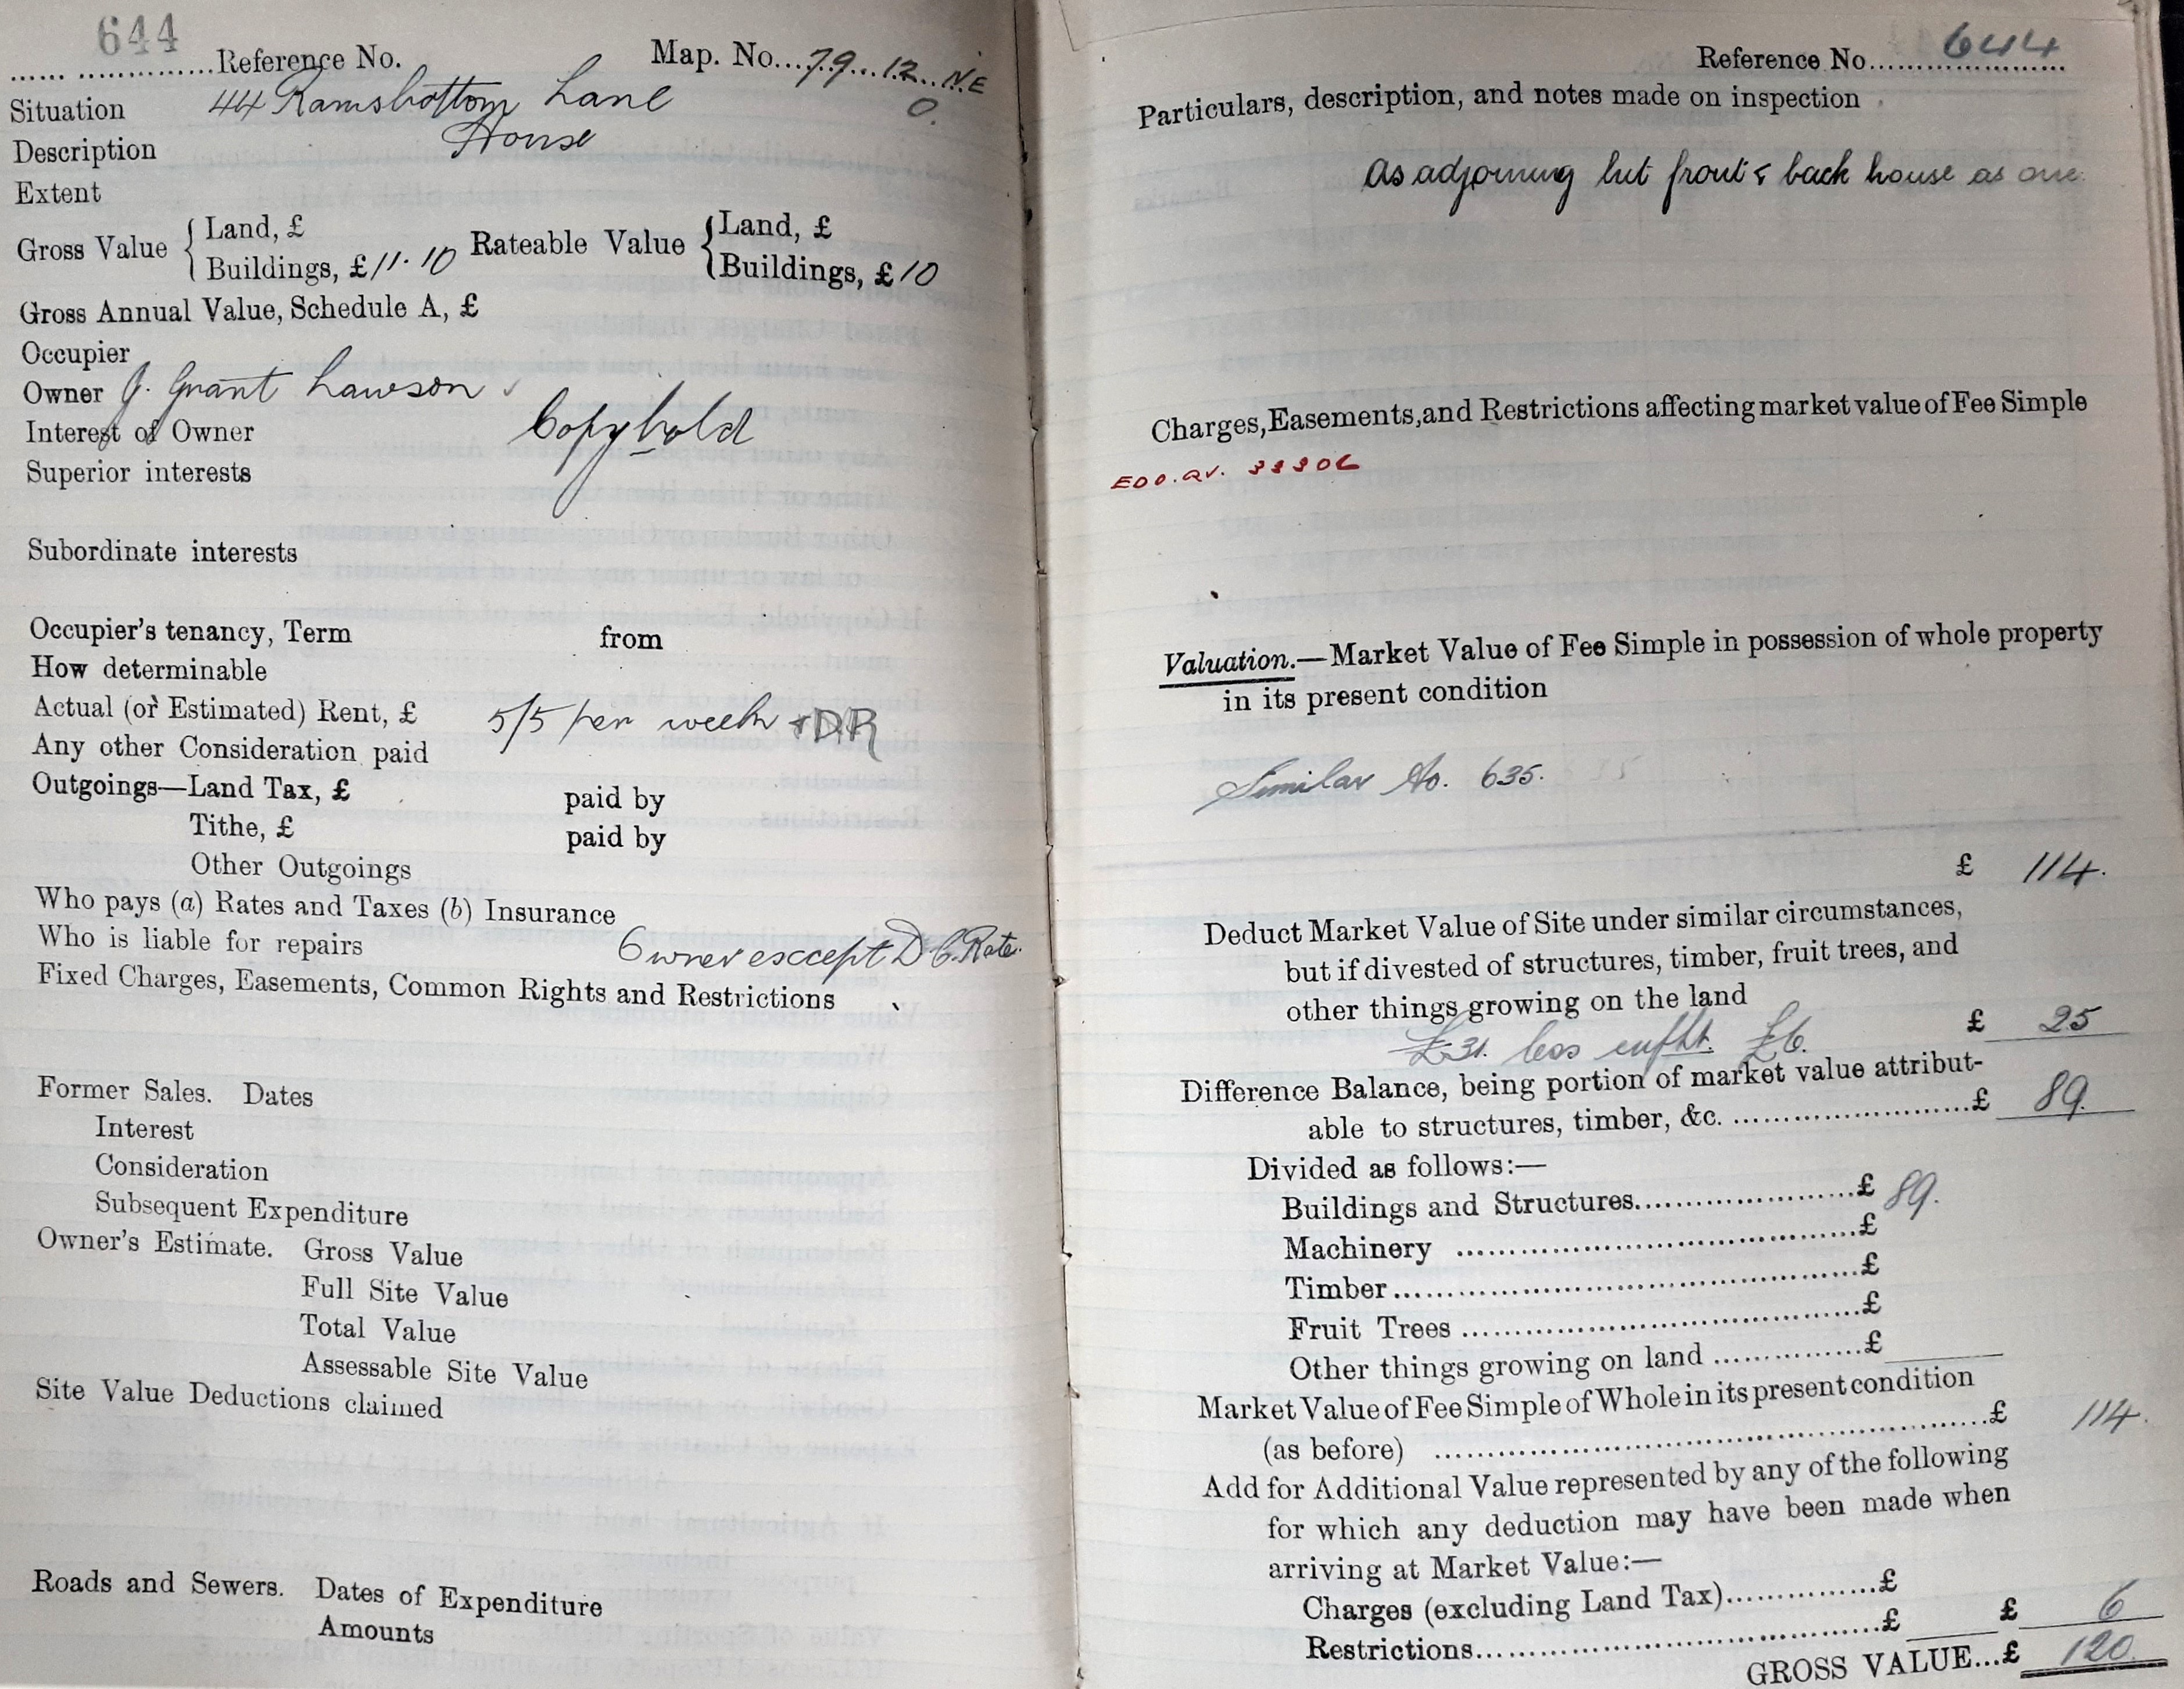 644
...... ..............Reference No. Map. No...79...12...N.E
0.
Situation 44 Ramsbottom Lane
Description House
Extent
Gross Value { Land, £
Buildings, £11.10 Rateable Value { Land, £
Buildings, £10
Gross Annual Value, Schedule A, £
Occupier
Owner J. Grant Lawson
Interest of Owner Copyhold
Superior interests
Subordinate interests
Occupier's tenancy, Term from
How determinable
Actual (or Estimated) Rent, £ 5/5 per week + DR
Any other Consideration paid
Outgoings—Land Tax, £ paid by
Tithe, £ paid by
Other Outgoings
Who pays (a) Rates and Taxes (b) Insurance
Who is liable for repairs Owner except D.C. Rate.
Fixed Charges, Easements, Common Rights and Restrictions
Former Sales. Dates
Interest
Consideration
Subsequent Expenditure
Owner's Estimate. Gross Value
Full Site Value
Total Value
Assessable Site Value
Site Value Deductions claimed
Roads and Sewers. Dates of Expenditure
Amounts
Reference No. 644
Particulars, description, and notes made on inspection
As adjoining but front & back house as one.
Charges, Easements, and Restrictions affecting market value of Fee Simple
Valuation.—Market Value of Fee Simple in possession of whole property
in its present condition
Similar No. 635.
£ 114.
Deduct Market Value of Site under similar circumstances,
but if divested of structures, timber, fruit trees, and
other things growing on the land
£31. less enfht. £6. £ 25
Difference Balance, being portion of market value attribut-
able to structures, timber, &c. ........................£ 89.
Divided as follows:—
Buildings and Structures......................£ 89.
Machinery ........................................£
Timber..............................................£
Fruit Trees .......................................£
Other things growing on land ...............£
Market Value of Fee Simple of Whole in its present condition
(as before) .......................................................£ 114.
Add for Additional Value represented by any of the following
for which any deduction may have been made when
arriving at Market Value:—
Charges (excluding Land Tax)...............£
Restrictions.......................................£ £ 6
GROSS VALUE...£ 120.